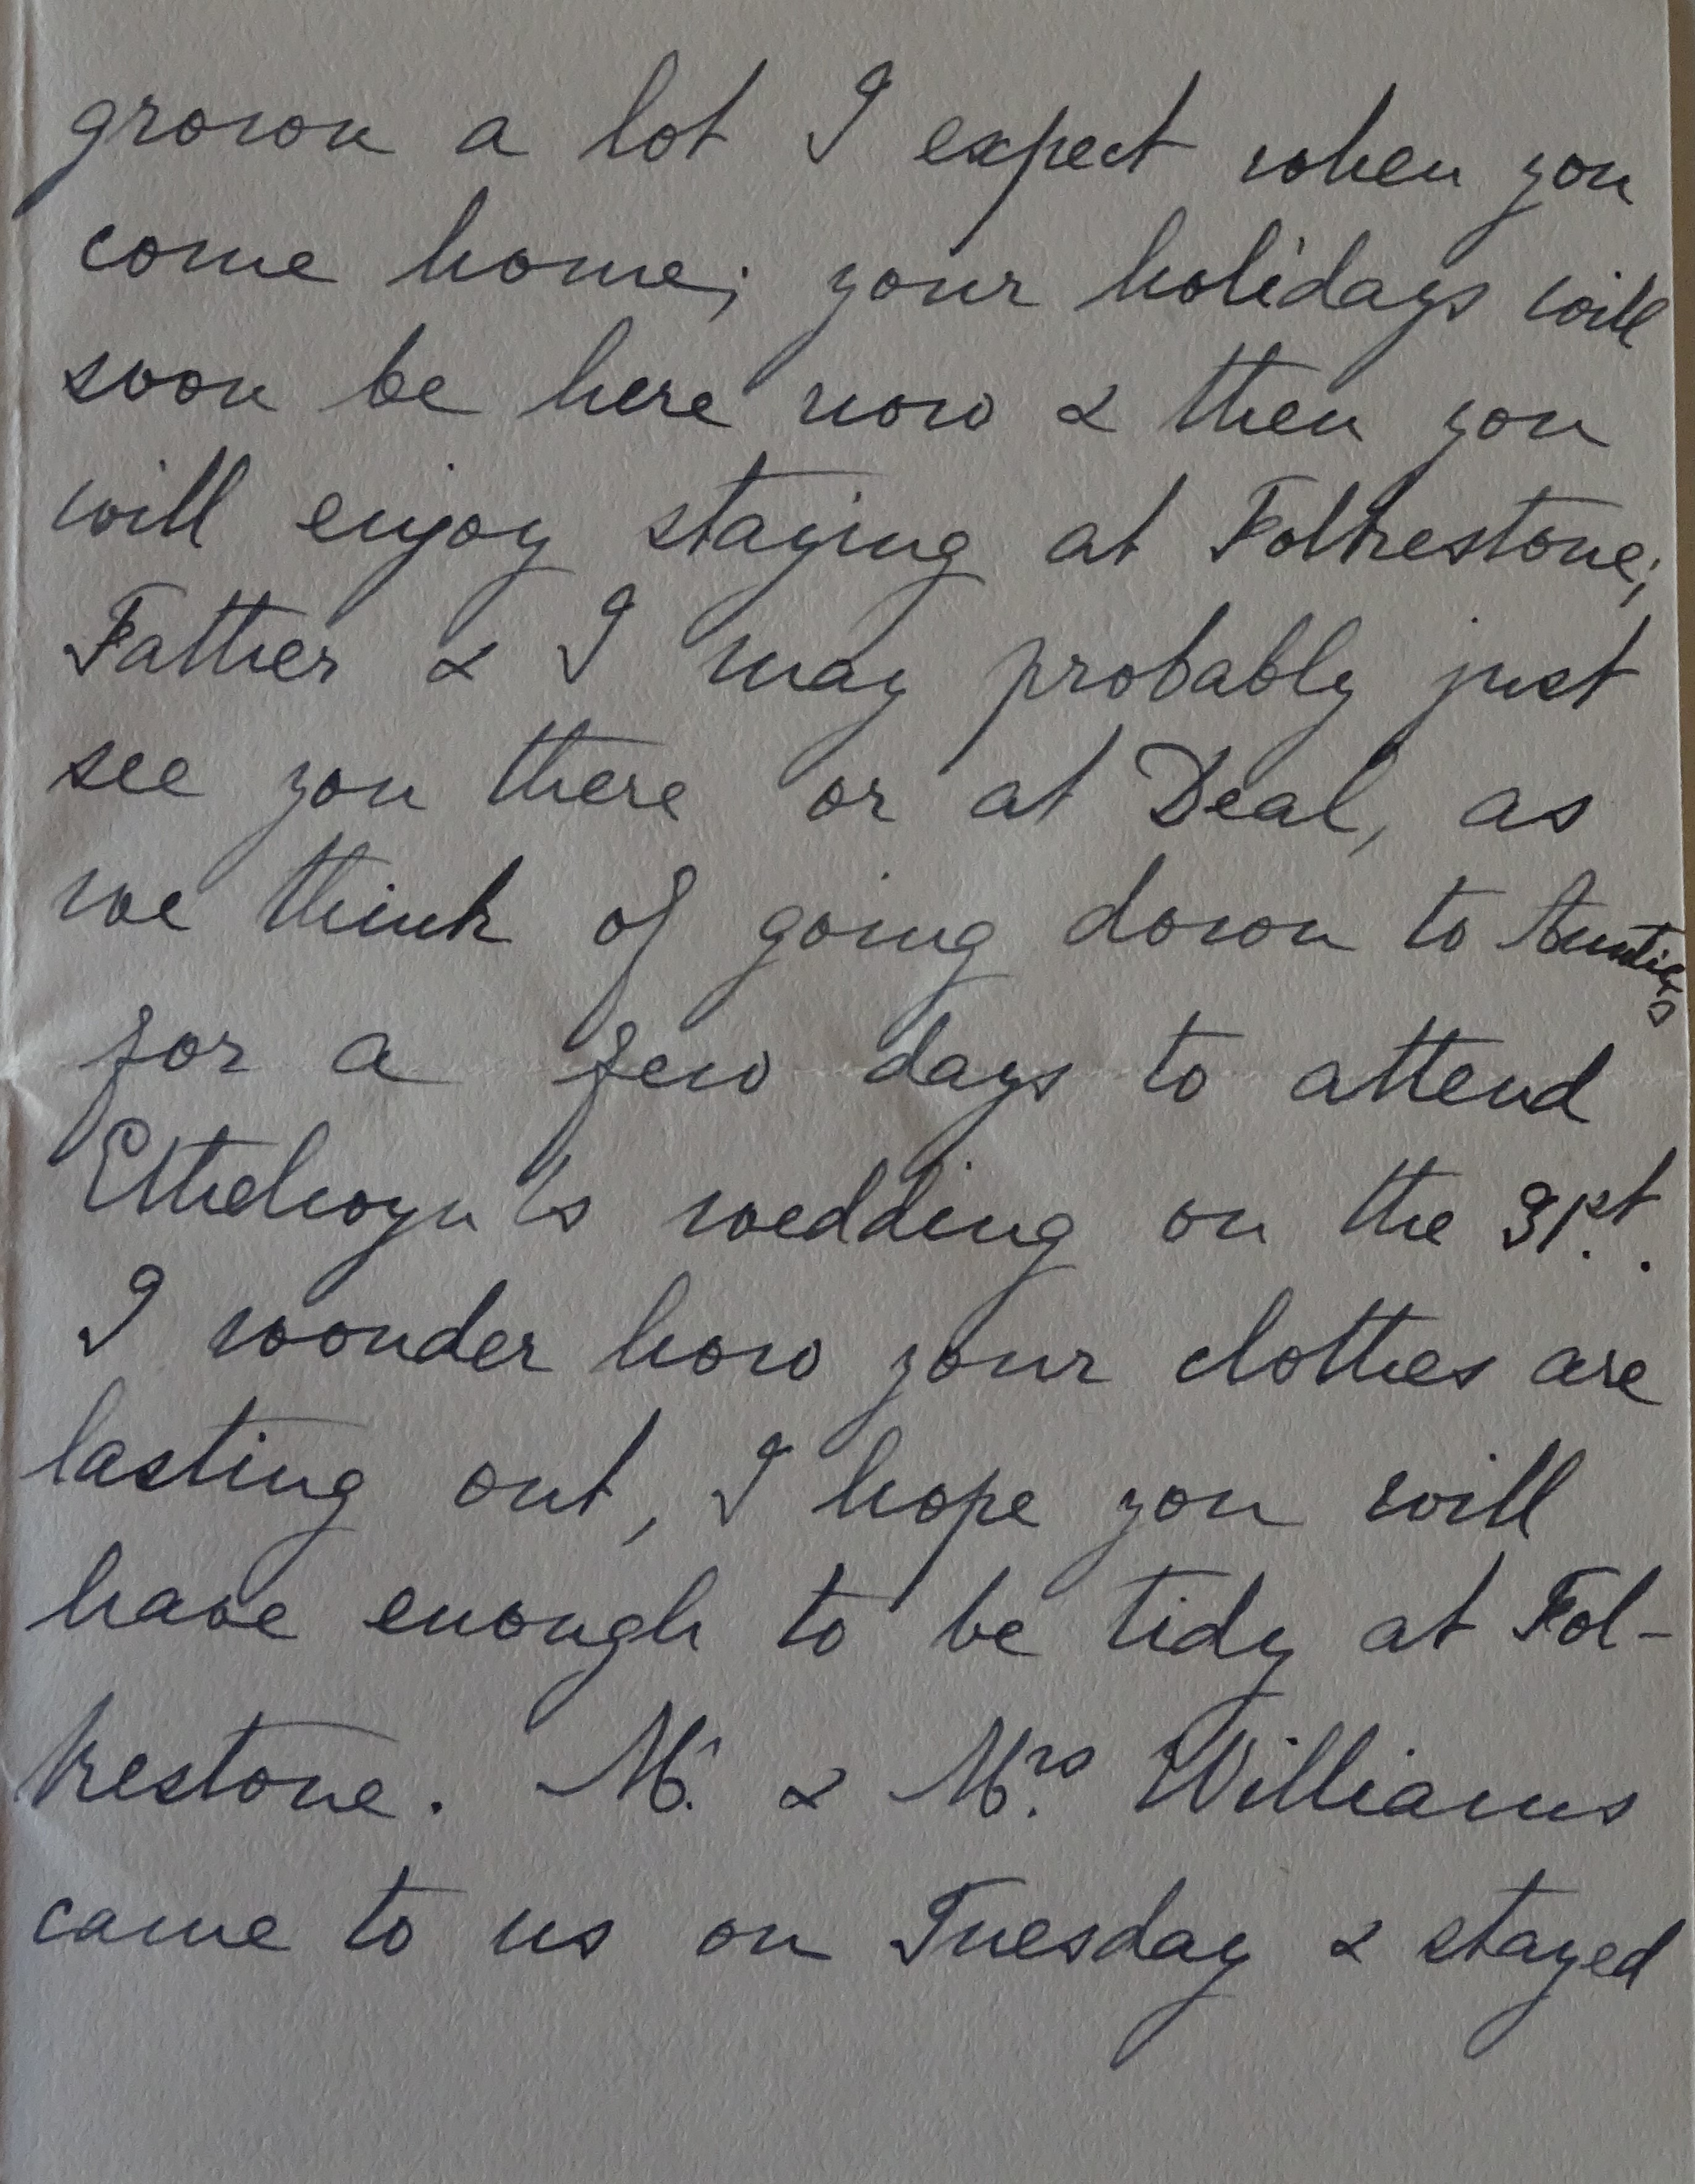 grown a lot I expect when you
come home; your holidays will
soon be here now & then you
will enjoy staying at Folkestone;
Father & I may probably just
see you there or at Deal, as
we think of going down to Aunties
for a few days to attend
Ethelwyn's wedding on the 31st.
I wonder how your clothes are
lasting out, I hope you will
have enough to be tidy at Fol-
kestone. Mr. & Mrs. Williams
came to us on Tuesday & stayed